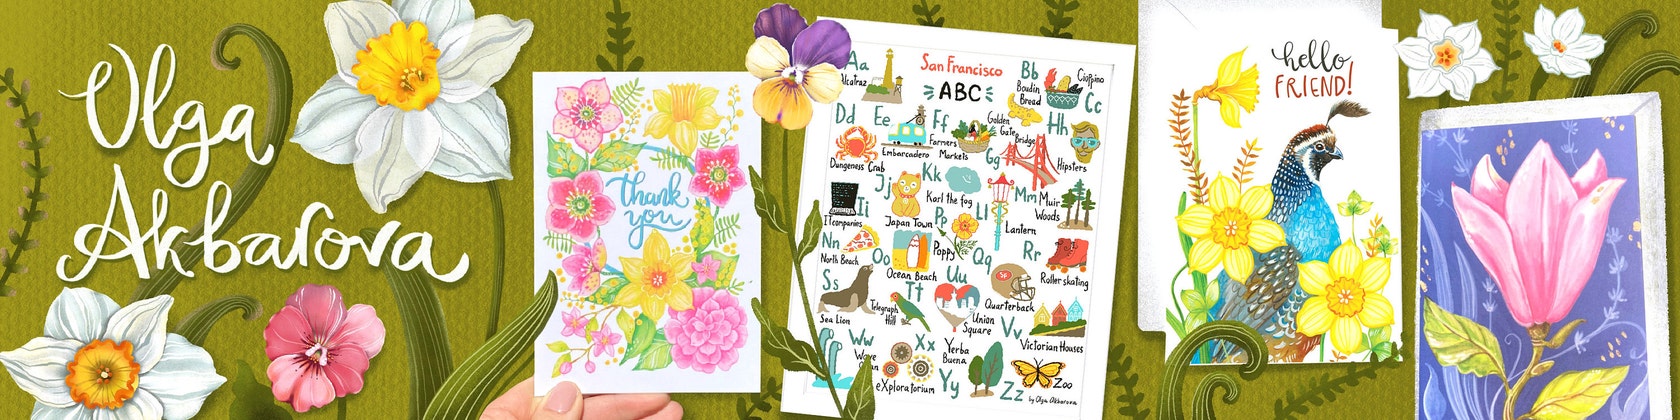 Olga
Akbarova
thank
you
San Francisco
ABC
Aa
Alcatraz
Bb
Boudin
Bread
Cioppino
Cc
Dd
Dungeness Crab
Ee
Embarcadero
Ff
Farmers
Markets
Golden
Gate
Bridge
Gg
Hh
Hipsters
Ii
IT companies
Jj
Japan Town
Kk
Karl the fog
Ll
Lantern
Mm
Muir
Woods
Nn
North Beach
Oo
Ocean Beach
Pp
Poppy
Qq
Quarterback
Rr
Roller skating
Ss
Sea Lion
Tt
Telegraph
Hill
Uu
Union
Square
Vv
Victorian Houses
Ww
Wave
Xx
eXploratorium
Yerba
Buena
Yy
Zz
Zoo
by Olga Akbarova
hello
FRIEND!